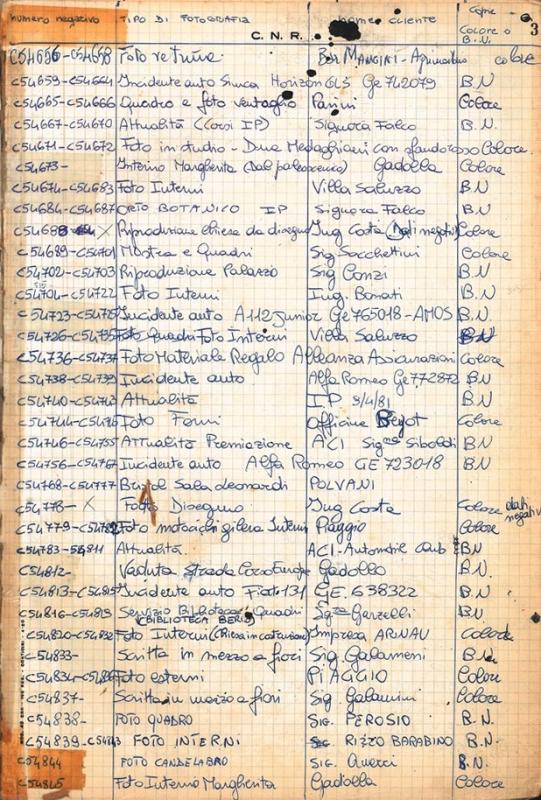 numero negativo TIPO DI FOTOGRAFIA nome cliente Copie Colore o B.N. 3
C. N. R.
C54656-C54658 Foto Mangini-Agrumario colore
C54659-C54664 Incidente auto Simca Horizon GLS Ge 742079 B.N
C54665-C54666 Quadro e foto ventaglio Parini Colore
C54667-C54670 Attualità (Corsi IP) Signora Falco B.N.
C54671-C54672 Foto in studio - Due Medaglioni con sfondo rosso Colore.
C54673- Interino Margherita (Dal palcoscenico) Gadolla Colore
C54674-C54683 Foto Interni Villa Saluzzo B.N
C54684-C54687 ORTO BOTANICO IP Signora Falco B.N.
C54688 X Riproduzione chiesa da disegno Ing Costa (dati negativi) Colore
C54689-C54701 Mostra e Quadri Sig Socchettini Colore
C54702-C54703 Riproduzione Palazzo Sig Conzi B.N
C54704-C54722 Foto Interni Ing. Bonati B.N.
C54723-C54725 Incidente auto A112 Junior Ge 765018-AMOS B.N.
C54726-C54735 Foto Quadri Foto Interni Villa Saluzzo B.N
C54736-C54737 Foto Materiale Regalo Alleanza Assicurazioni Colore
C54738-C54739 Incidente auto Alfa Romeo Ge 772872 B.N
C54740-C54743 Attualità IP 8/4/81 B.N
C54744-C54745 Foto Forni Officine Colore
C54746-C54755 Attualità Premiazione ACI Sig.ra Siboldi B.N
C54756-C54767 Incidente auto Alfa Romeo GE 723018 B.N
C54768-C54777 Bristol Sala leonardi POLVANI
C54778- X Foto Disegno Ing Costa Colore dati negativi
C54779-C54782 Foto motocicli gilera Interni Piaggio Colore
C54783-54811 Attualità ACI-Automobil Club B.N
C54812- Veduta strada Corso Europa Gadolla B.N.
C54813-C54815 Incidente auto Fiat 131 GE. 638322 B.N
C54816-C54819 Servizio Biblioteca Quadri Sig.ra Garzelli B.N
(BIBLIOTECA BERIO)
C54820-C54832 Foto Interni (Chiesa in costruzione) Impresa ARINAV Colore
C54833- Scritta in mezzo a fiori Sig. Galamini B.N.
C54834-C54836 Foto esterni PIAGGIO Colore
C54837- Scritta in mezzo a fiori Sig. Galamini Colore
C54838- FOTO QUADRO SIG. PEROSIO B.N.
C54839-C54843 FOTO INTERNI RIZZO BARABINO B.N.
C54844 FOTO CANDELABRO SIG. Querci B.N.
C54845 Foto Interno Margherita Gadolla Colore